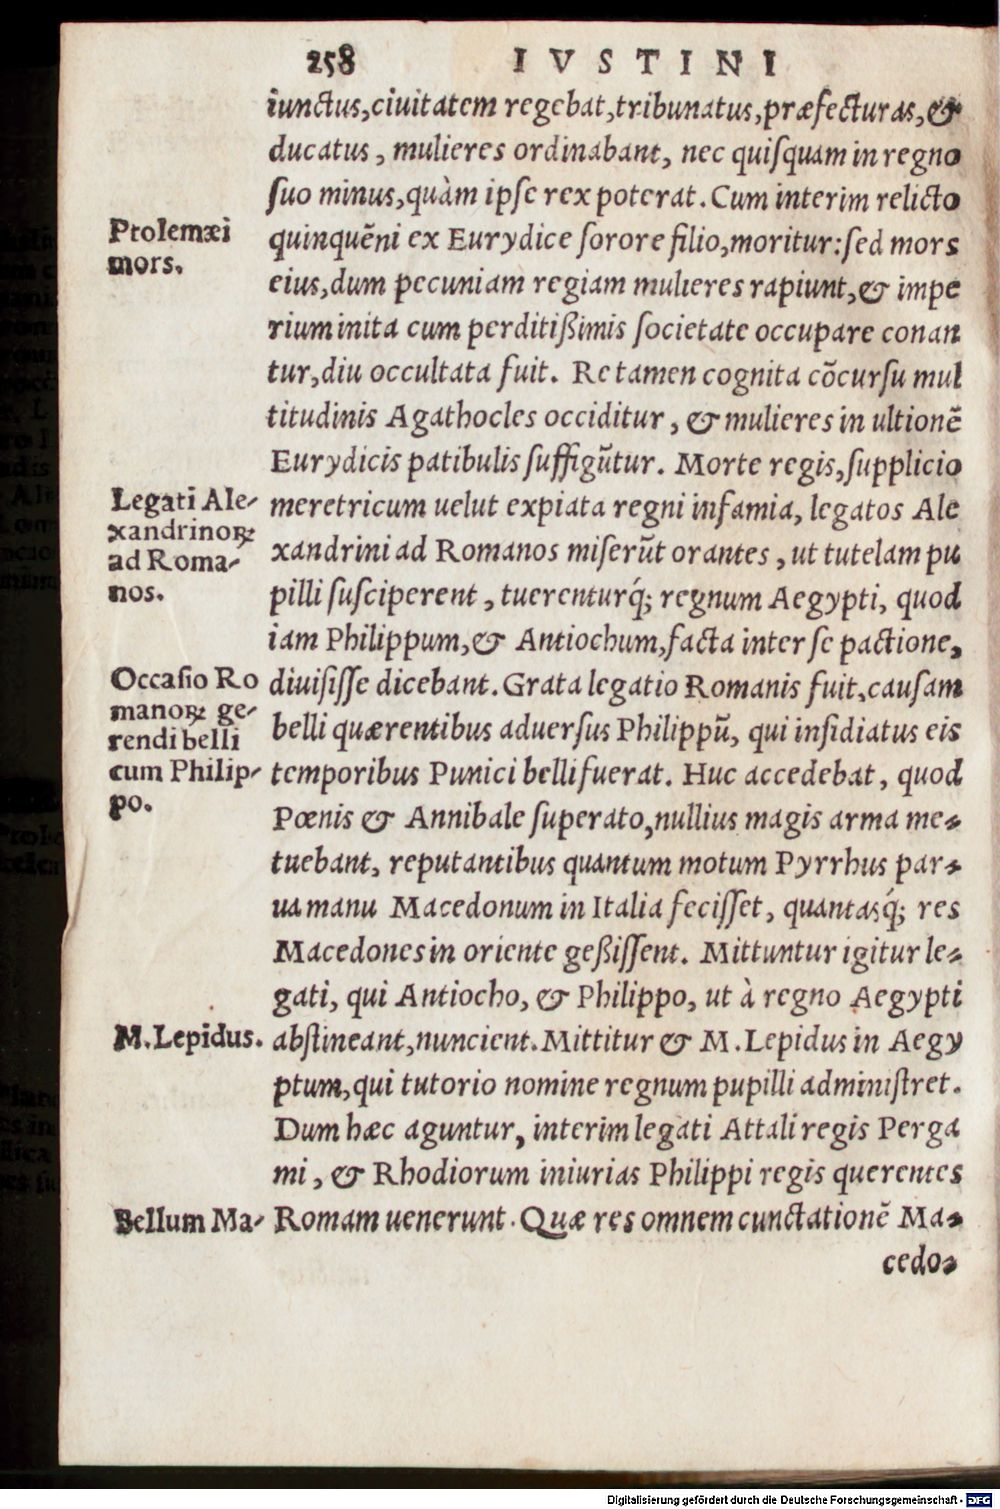 258 IVSTINI
iunctus, ciuitatem regebat, tribunatus, præfecturas, &
ducatus, mulieres ordinabant, nec quiſquam in regno
ſuo minus, quàm ipſe rex poterat. Cum interim relicto
Ptolemæi
mors.
quinquẽni ex Eurydice ſorore filio, moritur: ſed mors
eius, dum pecuniam regiam mulieres rapiunt, & impe
rium inita cum perditißimis ſocietate occupare conan
tur, diu occultata fuit. Re tamen cognita cõcurſu mul
titudinis Agathocles occiditur, & mulieres in ultionẽ
Eurydicis patibulis ſuffigũtur. Morte regis, ſupplicio
Legati Ale-
xandrinoꝝ
ad Roma-
nos.
meretricum uelut expiata regni infamia, legatos Ale
xandrini ad Romanos miſerũt orantes, ut tutelam pu
pilli ſuſciperent, tuerenturq́; regnum Aegypti, quod
iam Philippum, & Antiochum, facta inter ſe pactione,
Occaſio Ro
manoꝝ ge-
rendi belli
cum Philip-
po.
diuiſiſſe dicebant. Grata legatio Romanis fuit, cauſam
belli quærentibus aduerſus Philippũ, qui inſidiatus eis
temporibus Punici belli fuerat. Huc accedebat, quod
Pœnis & Annibale ſuperato, nullius magis arma me-
tuebant, reputantibus quantum motum Pyrrhus par-
ua manu Macedonum in Italia feciſſet, quantasq́; res
Macedones in oriente geßiſſent. Mittuntur igitur le-
gati, qui Antiocho, & Philippo, ut à regno Aegypti
M. Lepidus.
abſtineant, nuncient. Mittitur & M. Lepidus in Aegy
ptum, qui tutorio nomine regnum pupilli adminiſtret.
Dum hæc aguntur, interim legati Attali regis Perga
mi, & Rhodiorum iniurias Philippi regis querentes
Bellum Ma-
Romam uenerunt. Quæ res omnem cunctationẽ Ma-
cedo-
Digitalisierung gefördert durch die Deutsche Forschungsgemeinschaft - DFG